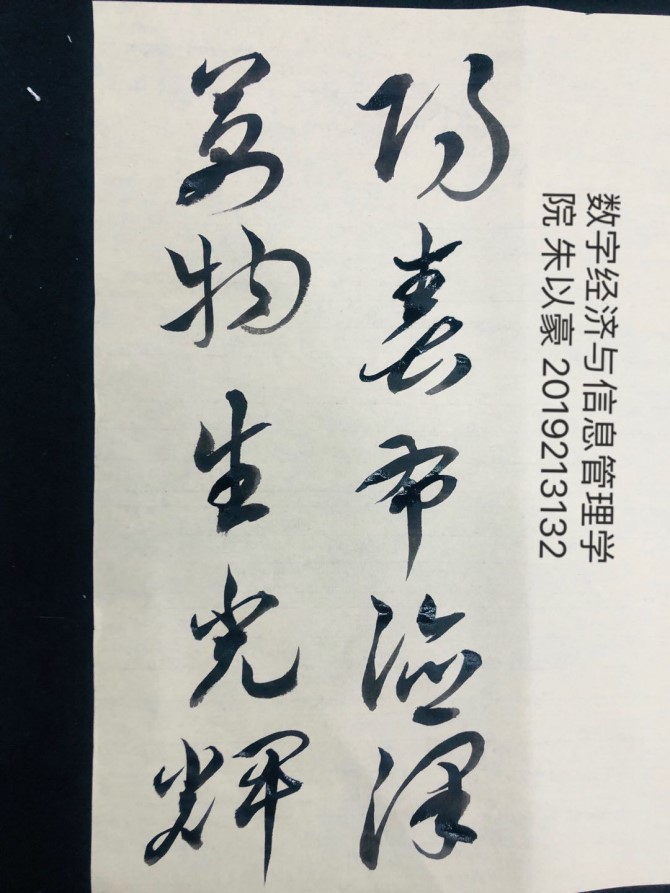 数字经济与信息管理学
院 朱以豪 2019213132
陽春布德澤
萬物生光輝